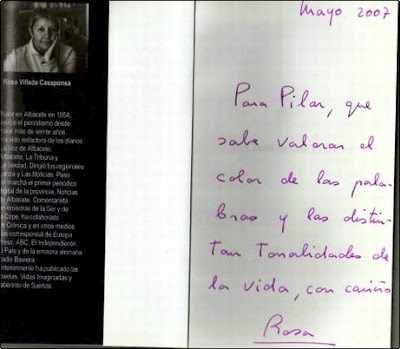 Rosa Villada Casaponsa
Nace en Albacete en 1954,
ejerce el periodismo desde
hace más de veinte años.
Ha sido redactora de los diarios
La Voz de Albacete,
Albacete, La Tribuna y
La Verdad. Dirigió los regionales
y Las Noticias. Puso
en marcha el primer periódico
digital de la provincia, Noticias
de Albacete. Comentarista
en emisoras de la Ser y de
la Cope, ha colaborado
en Crónica y en otros medios.
fue corresponsal de Europa
Press, ABC, El Independiente,
El País y de la emisora alemana
Radio Baviera.
Anteriormente ha publicado las
novelas: Vidas Imaginadas y
Laberinto de Sueños.
Mayo 2007
Para Pilar, que
sabe valorar el
color de las pala-
bras y las distin-
tan Tonalidades de
la vida, con cariño
Rosa